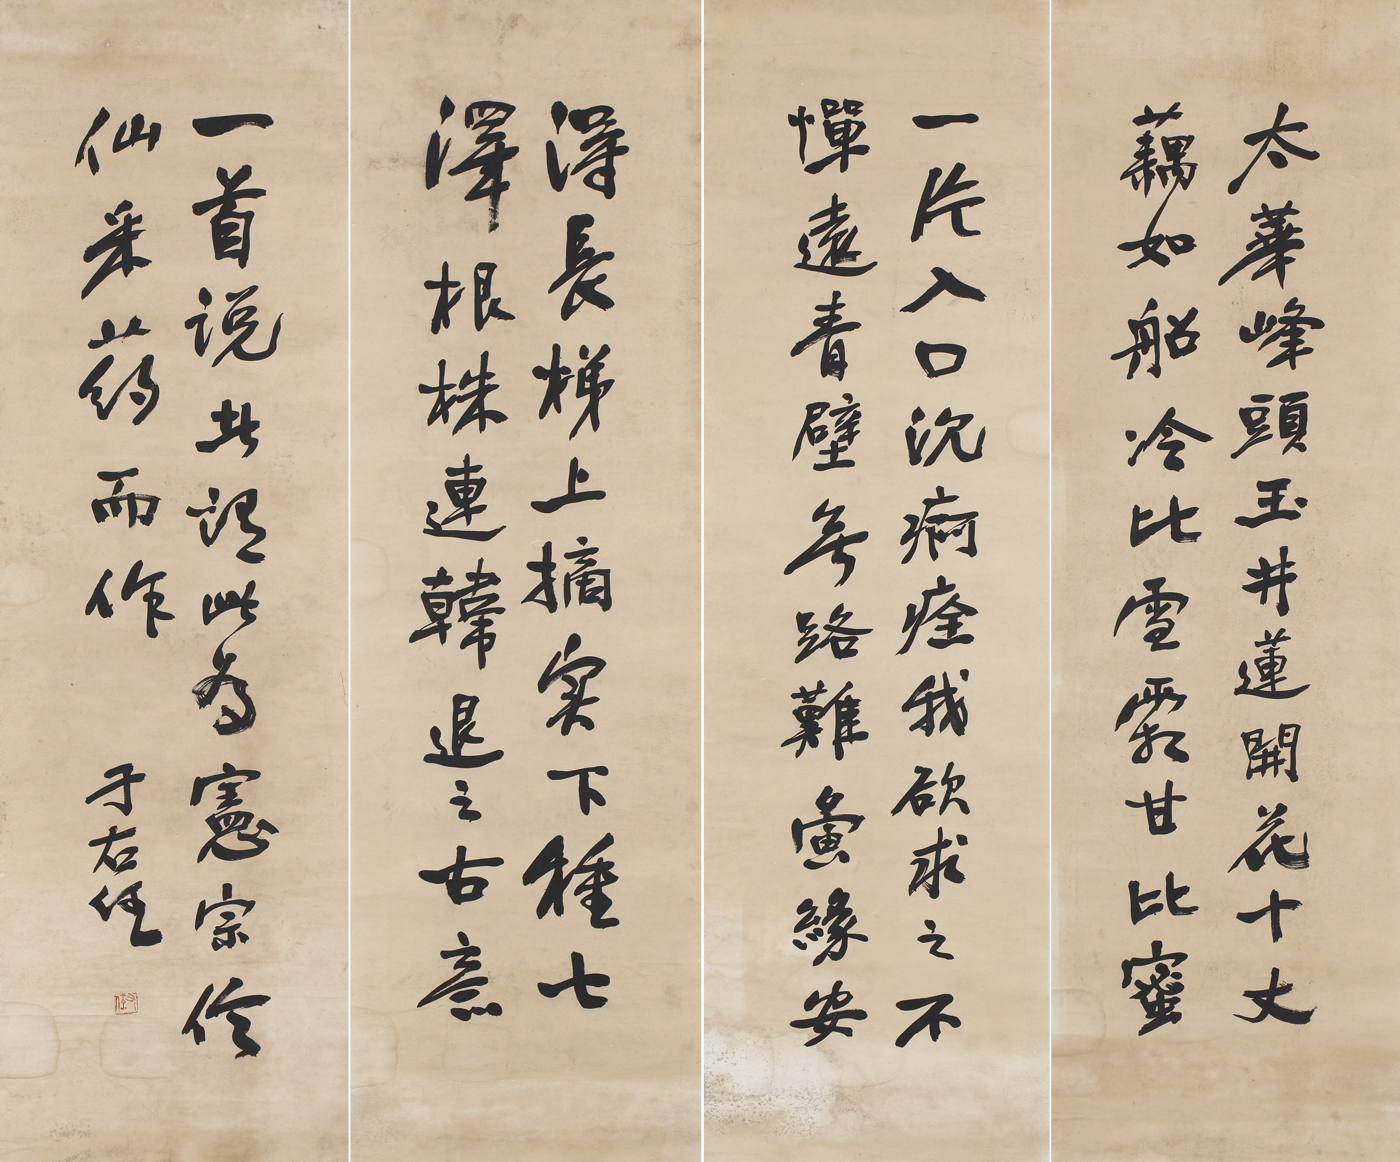 太華峰頭玉井蓮開花十丈
藕如船冷比雪霜甘比蜜
一片入口沈痾痊我欲求之不
憚遠青壁無路難夤緣安
得長梯上摘实下種七
澤根株連韓退之古意
一首說者謂此為憲宗信
仙采药而作
于右任
右任